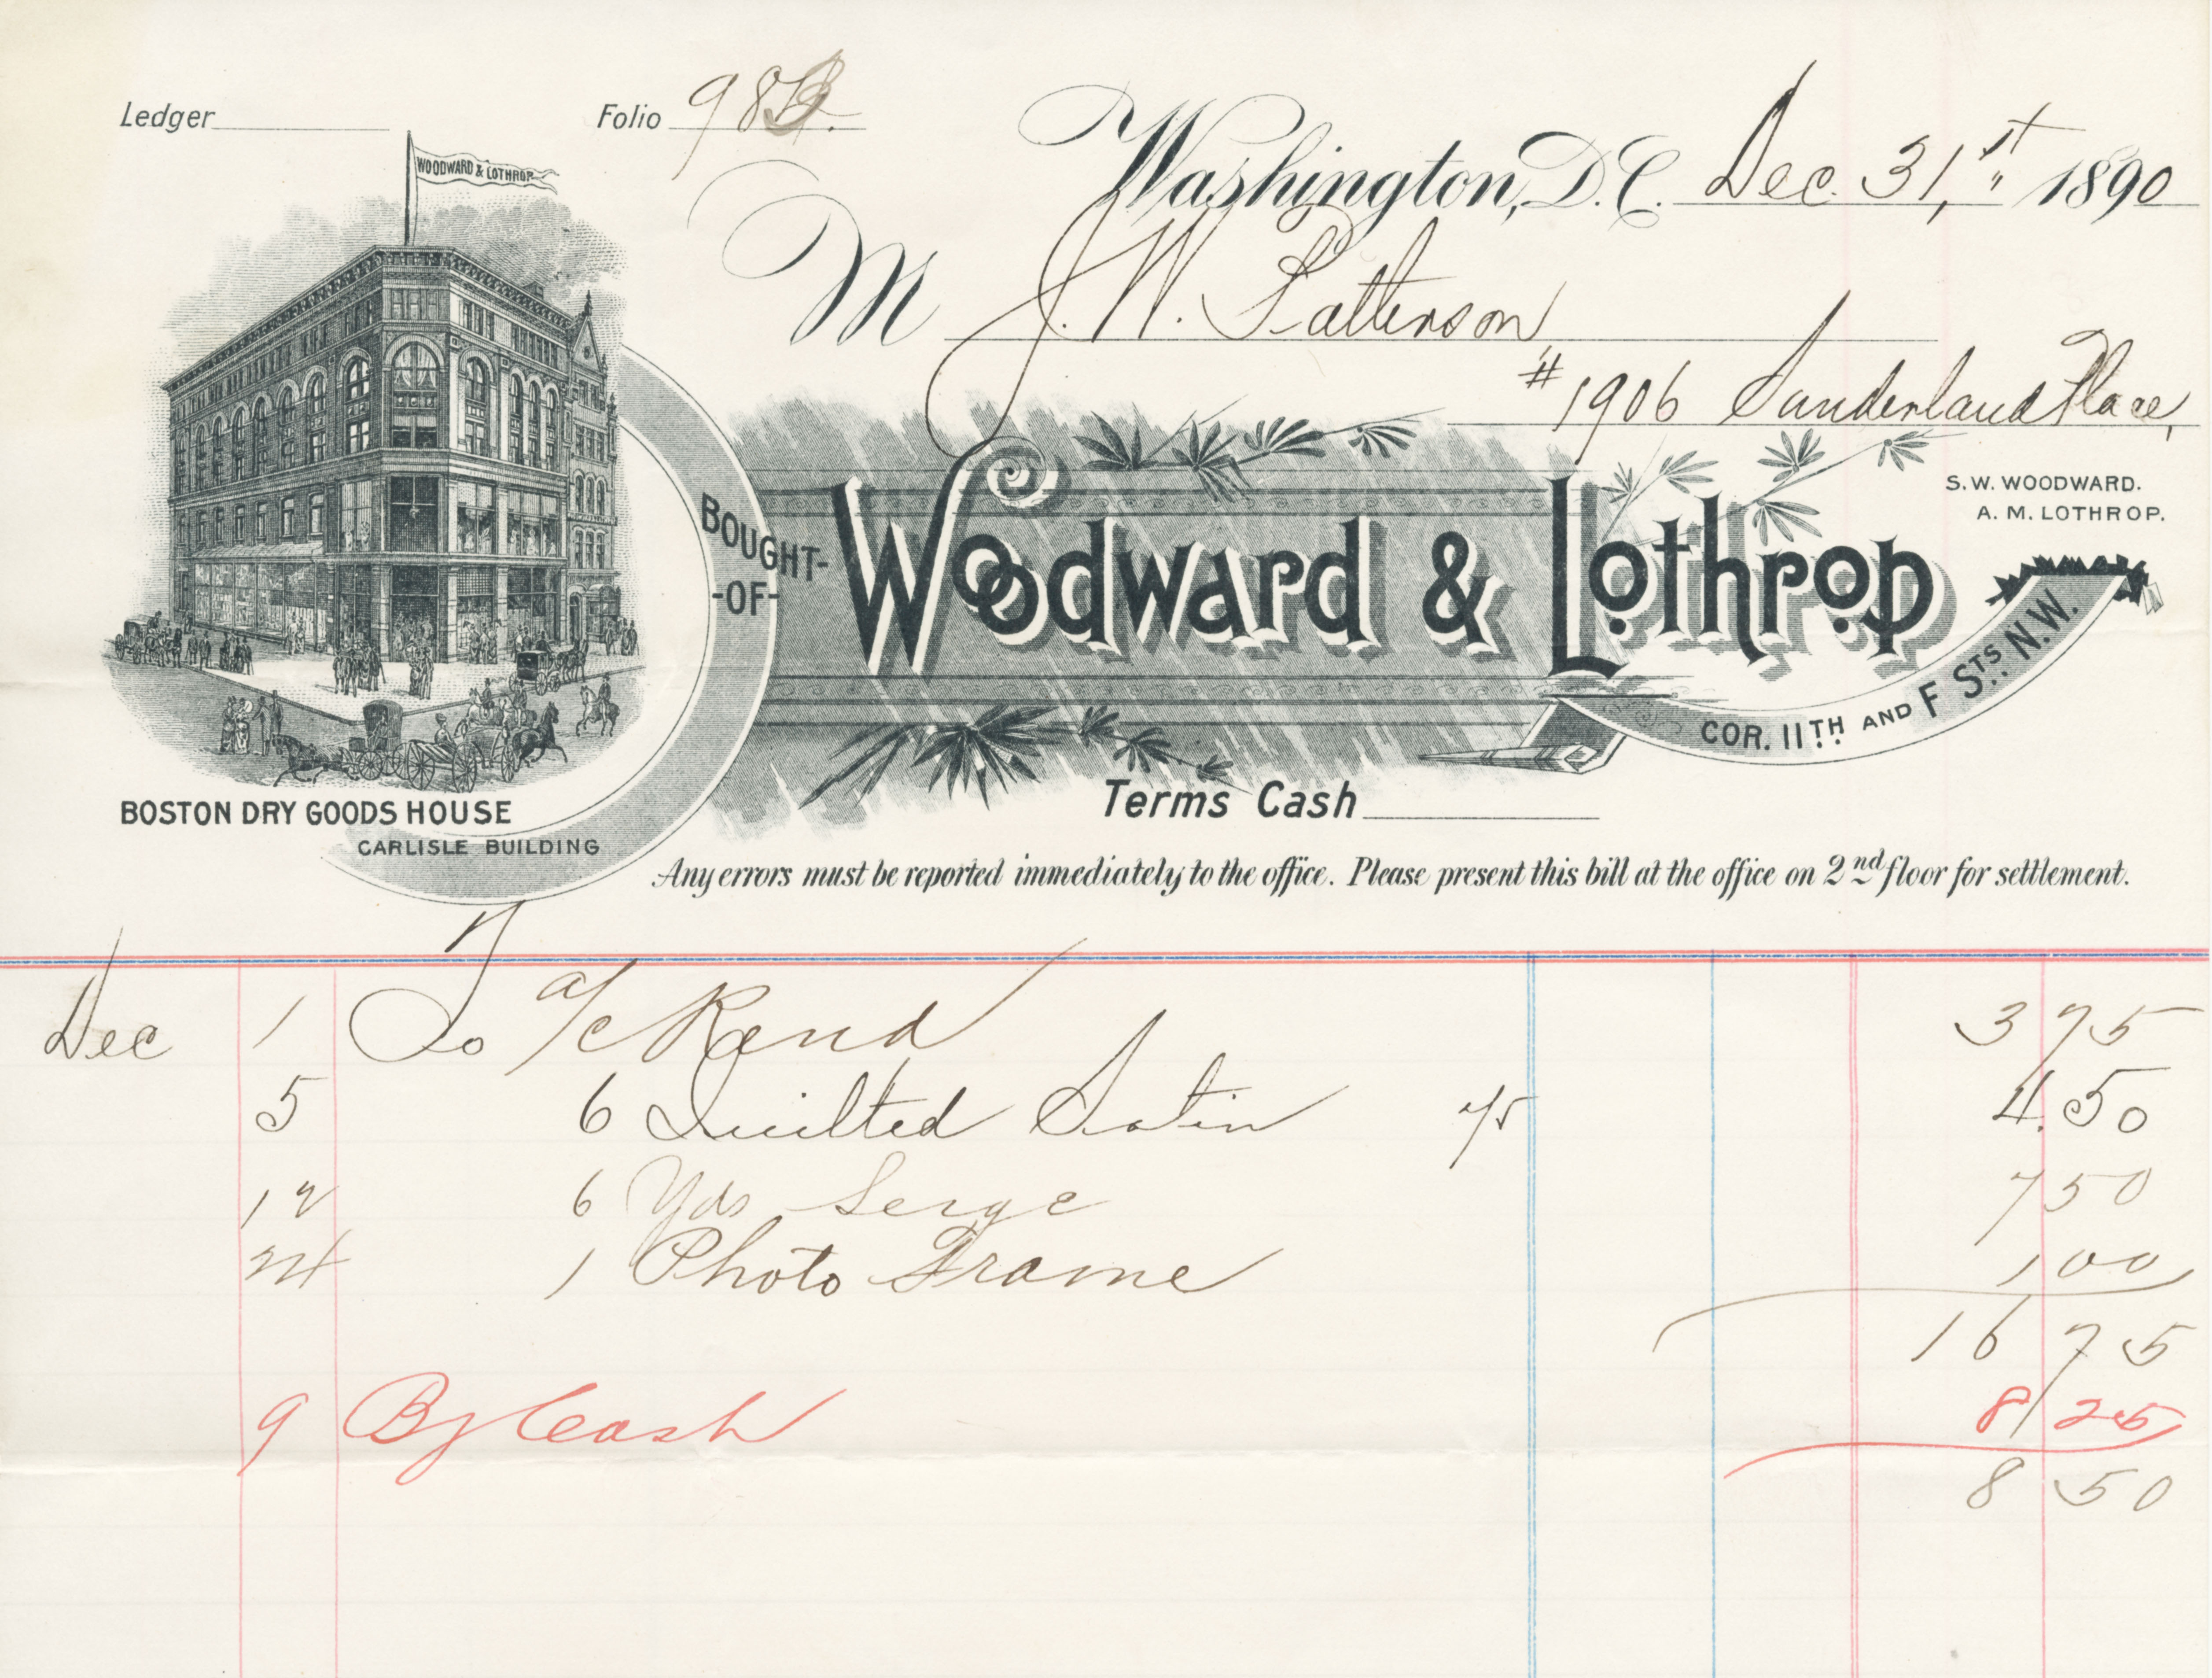 Ledger
Folio 98
WOODWARD & LOTHROP
Washington, D.C. Dec. 31,st 1890
M J. W. Patterson
#1906 Sunderland Place,
S. W. WOODWARD.
A. M. LOTHROP.
BOUGHT-
-OF-
Woodward & Lothrop
COR. 11TH AND F STS N.W.
Terms Cash
BOSTON DRY GOODS HOUSE
CARLISLE BUILDING
Any errors must be reported immediately to the office. Please present this bill at the office on 2nd floor for settlement.
Dec 1 To a/c Rend 3 75
5 6 Quilted Satin 75 4.50
12 6 Yds Serge 7 50
24 1 Photo Frame 1 00
16 75
9 By Cash 8 25
8 50